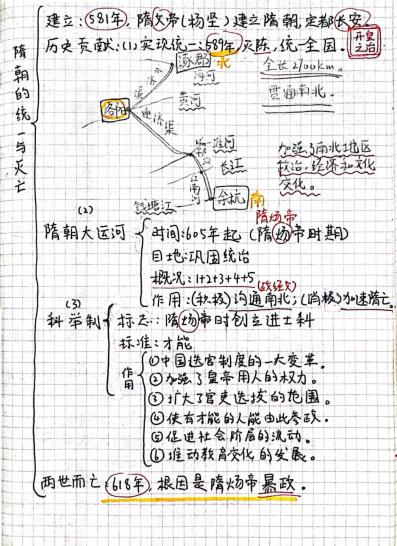 隋朝的统一与灭亡
建立:581年,隋文帝(杨坚)建立隋朝,定都长安。
历史贡献:(1)实现统一:589年灭陈,统一全国。
开皇之治
涿郡 北
全长2700km。
永济渠
海河
贯通南北。
黄河
洛阳
通济渠
淮河
加强了南北地区
长江
政治、经济和文化
江南河
交流。
钱塘江
余杭 南
隋炀帝
(2)
隋朝大运河
时间:605年起(隋炀帝时期)
目地:巩固统治
概况:1+2+3+4+5
作用:(积极)沟通南北;(消极)加速隋亡。
(3)
科举制
标志:隋炀帝时创立进士科
标准:才能
作用
①中国选官制度的一大变革。
②加强了皇帝用人的权力。
③扩大了官吏选拔的范围。
④使有才能的人能由此参政。
⑤促进社会阶层的流动。
⑥推动教育文化的发展。
两世而亡:618年,根因是隋炀帝暴政。